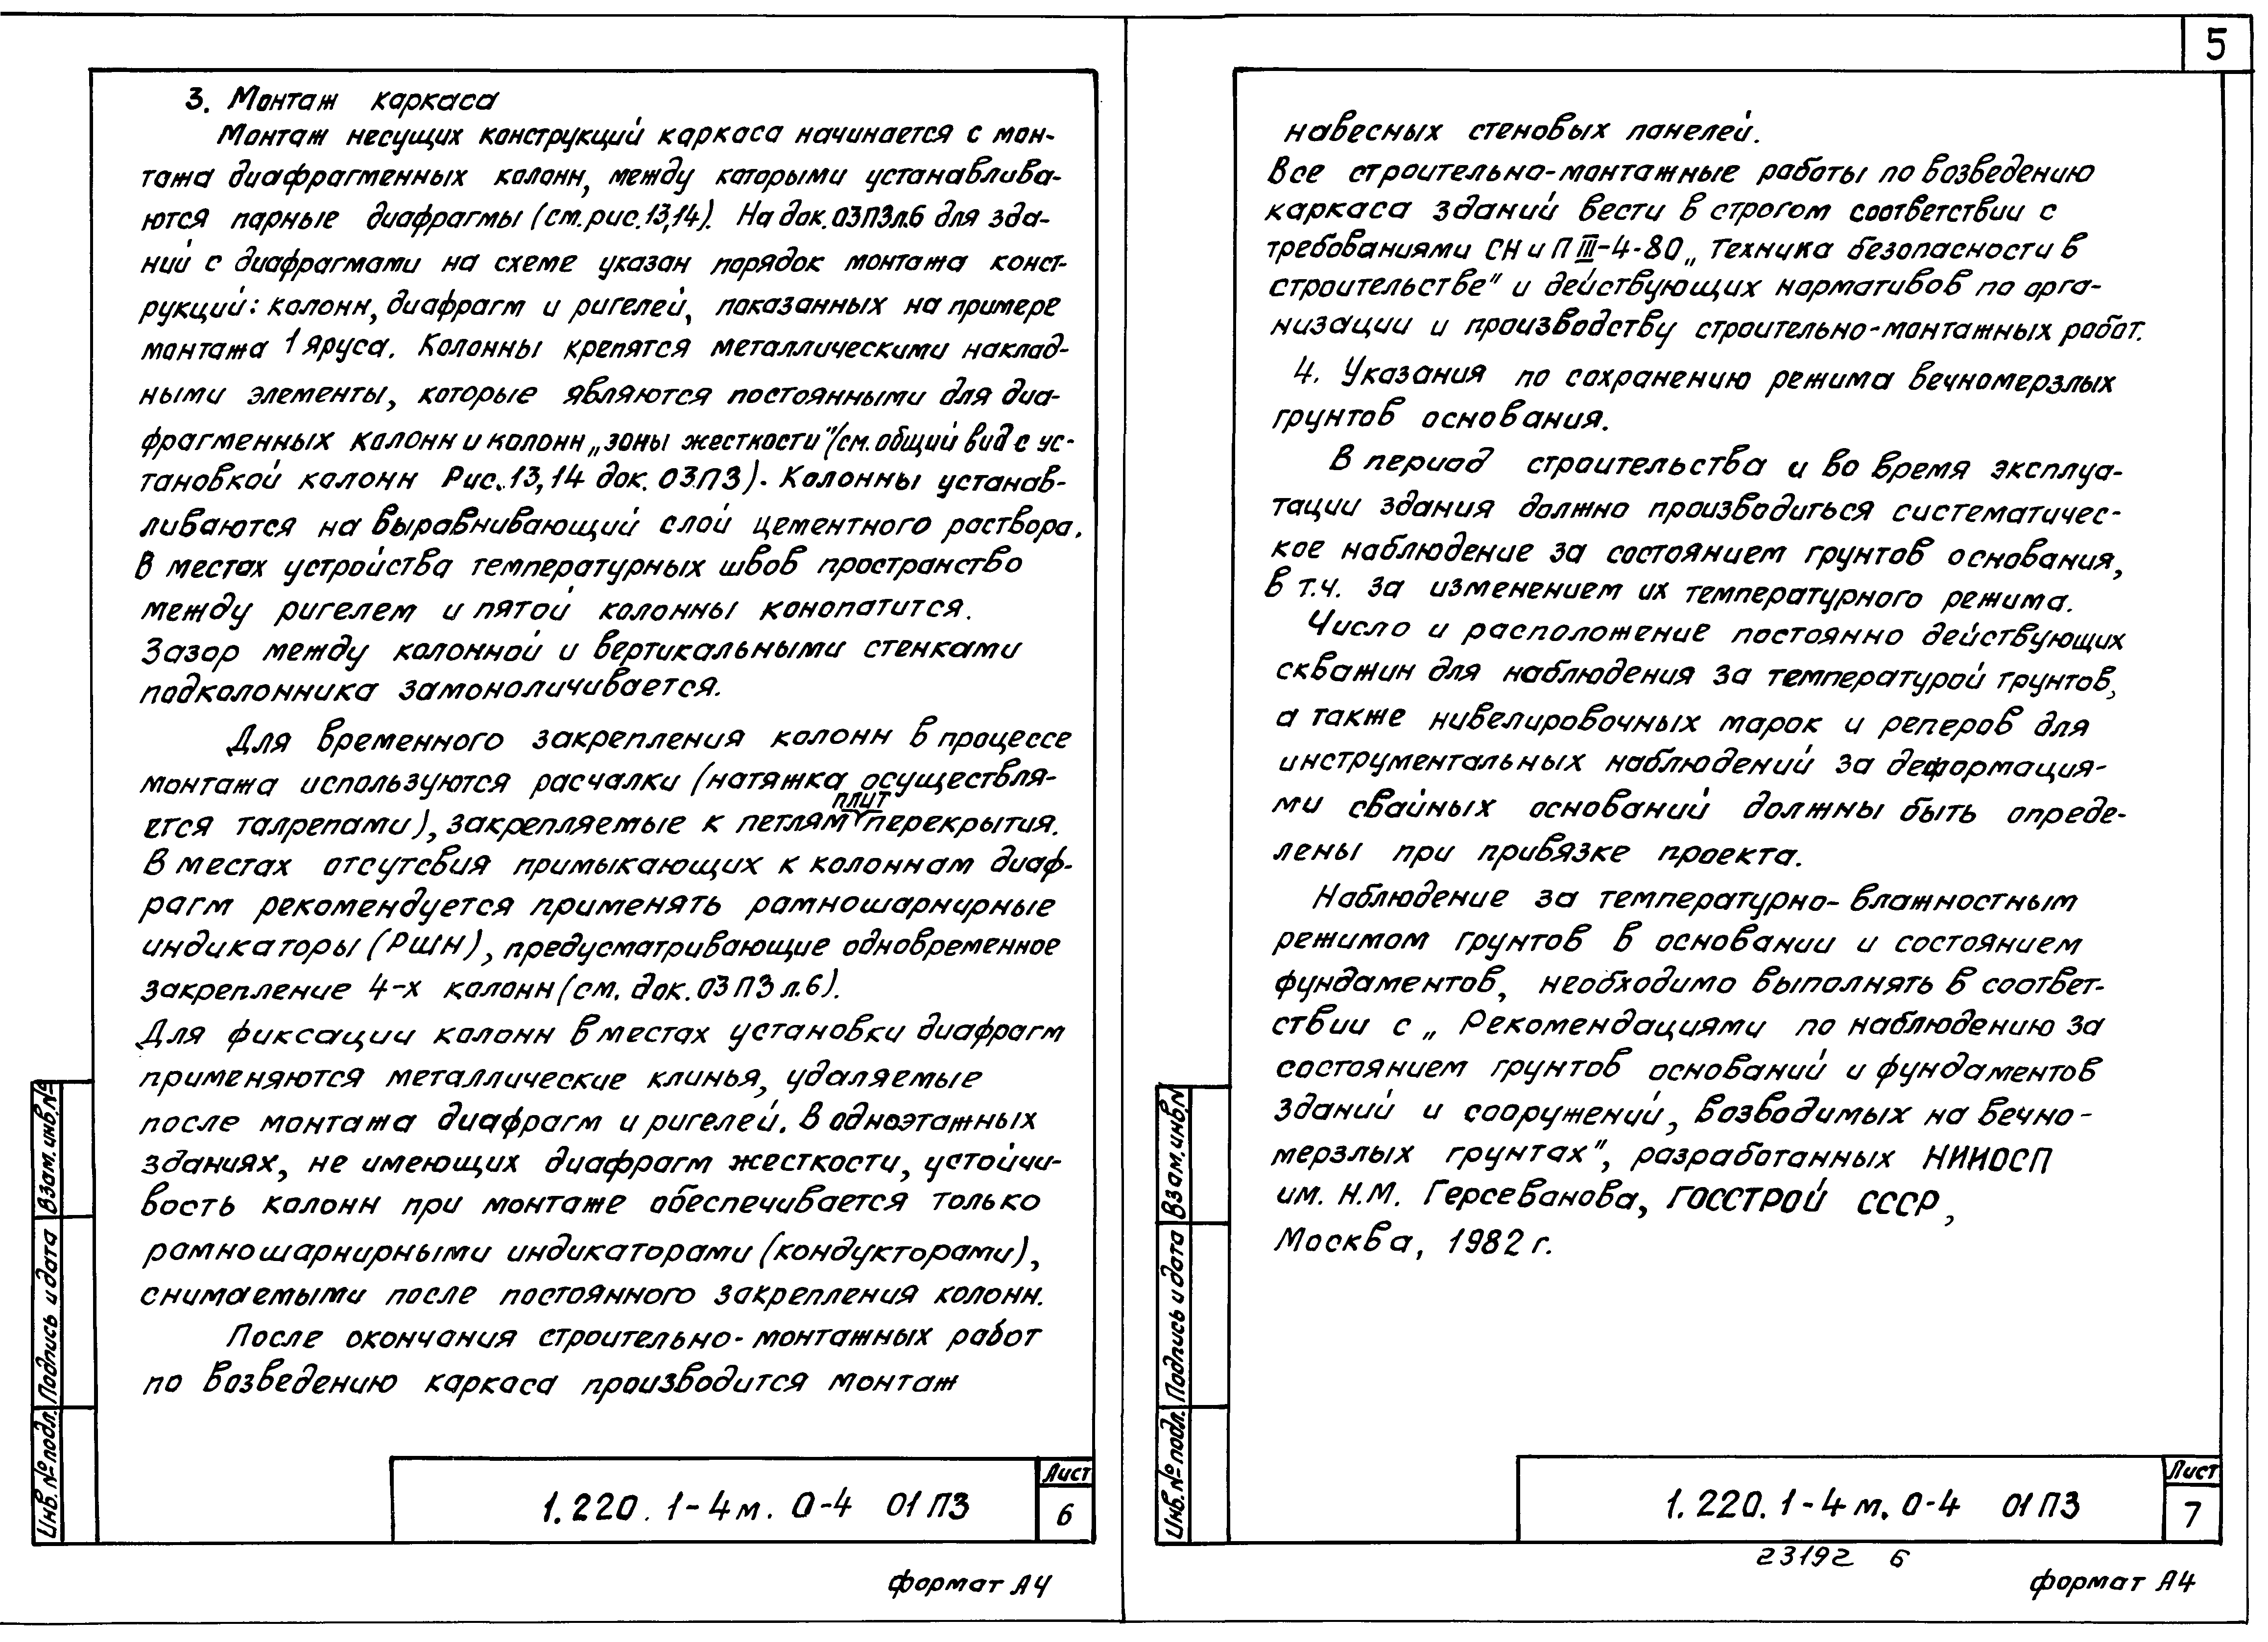 5
3. Монтаж каркаса
Монтаж несущих конструкций каркаса начинается с мон-
тажа диафрагменных колонн, между которыми устанавлива-
ются парные диафрагмы (см. рис. 13,14). На док. 03ПЗ л.6 для зда-
ний с диафрагмами на схеме указан порядок монтажа конст-
рукций: колонн, диафрагм и ригелей, показанных на примере
монтажа 1 яруса. Колонны крепятся металлическими наклад-
ными элементы, которые являются постоянными для диа-
фрагменных колонн и колонн „зоны жесткости" (см. общий вид с ус-
тановкой колонн Рис. 13, 14 док. 03.ПЗ). Колонны устанав-
ливаются на выравнивающий слой цементного раствора.
В местах устройства температурных швов пространство
между ригелем и пятой колонны конопатится.
Зазор между колонной и вертикальными стенками
подколонника замоноличивается.
Для временного закрепления колонн в процессе
монтажа используются расчалки (натяжка осуществля-
ется талрепами), закрепляемые к петлям плит перекрытия.
В местах отсутсвия примыкающих к колоннам диаф-
рагм рекомендуется применять рамношарнирные
индикаторы (РШН), предусматривающие одновременное
закрепление 4-х колонн (см. док. 03 ПЗ л.6).
Для фиксации колонн в местах установки диафрагм
применяются металлические клинья, удаляемые
после монтажа диафрагм и ригелей. В одноэтажных
зданиях, не имеющих диафрагм жесткости, устойчи-
вость колонн при монтаже обеспечивается только
рамношарнирными индикаторами (кондукторами),
снимаемыми после постоянного закрепления колонн.
После окончания строительно-монтажных работ
по возведению каркаса производится монтаж
Инв. № подл. Подпись и дата Взам. инв. №
1.220.1-4м. 0-4 01 ПЗ
Лист
6
формат А4
навесных стеновых панелей.
Все строительно-монтажные работы по возведению
каркаса зданий вести в строгом соответствии с
требованиями СН и П III-4-80 „Техника безопасности в
строительстве" и действующих нормативов по орга-
низации и производству строительно-монтажных работ.
4. Указания по сохранению режима вечномерзлых
грунтов основания.
В период строительства и во время эксплуа-
тации здания должно производиться систематичес-
кое наблюдение за состоянием грунтов основания,
в т.ч. за изменением их температурного режима.
Число и расположение постоянно действующих
скважин для наблюдения за температурой грунтов,
а также нивелировочных марок и реперов для
инструментальных наблюдений за деформация-
ми свайных оснований должны быть опреде-
лены при привязке проекта.
Наблюдение за температурно-влажностным
режимом грунтов в основании и состоянием
фундаментов, необходимо выполнять в соответ-
ствии с „Рекомендациями по наблюдению за
состоянием грунтов оснований и фундаментов
зданий и сооружений, возводимых на вечно-
мерзлых грунтах", разработанных НИИОСП
им. Н.М. Герсеванова, ГОССТРОЙ СССР,
Москва, 1982 г.
Инв. № подл. Подпись и дата Взам. инв. №
1.220.1-4м. 0-4 01 ПЗ
Лист
7
23192 6
формат А4